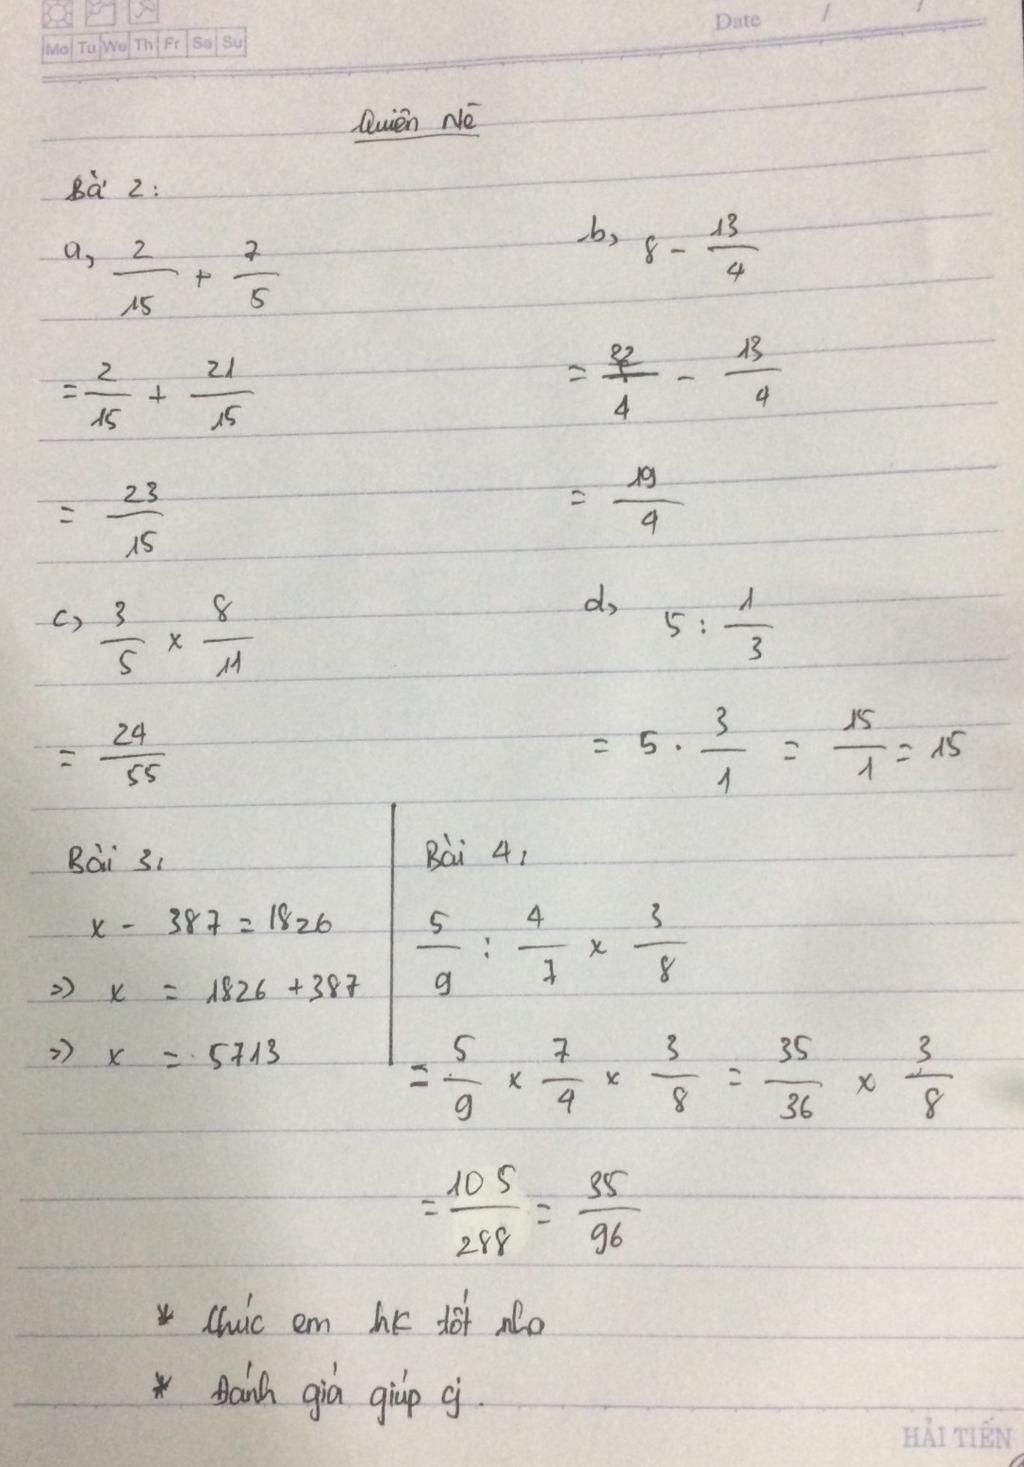 Mo Tu We Th Fr Sa Su
Date / /
Quiên Nè
Bài 2:
a, 2/15 + 7/5
b, 8 - 13/4
= 2/15 + 21/15
= 32/4 - 13/4
= 23/15
= 19/4
c, 3/5 x 8/11
d, 5 : 1/3
= 24/55
= 5 . 3/1 = 15/1 = 15
Bài 3:
x - 387 = 1826
=> x = 1826 + 387
=> x = 5713
Bài 4:
5/9 : 4/7 x 3/8
= 5/9 x 7/4 x 3/8 = 35/36 x 3/8
= 105/288 = 35/96
* Chúc em hk tốt nha
* Đánh giá giúp cj.
HẢI TIẾN